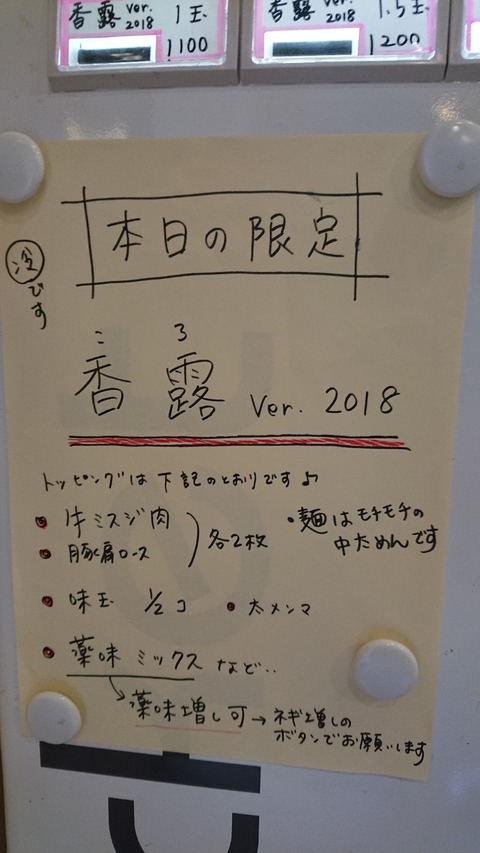 香露 ver. 2018 1玉
1100
香露 ver. 2018 1.5玉
1200
本日の限定
冷です
こ ろ
香露 Ver. 2018
トッピングは下記のとおりです♪
牛ミスジ肉
豚肩ロース
各2枚
・麺はモチモチの
中太めんです
味玉 1/2コ
太メンマ
薬味ミックスなど‥
薬味増し可→ネギ増しの
ボタンでお願いします